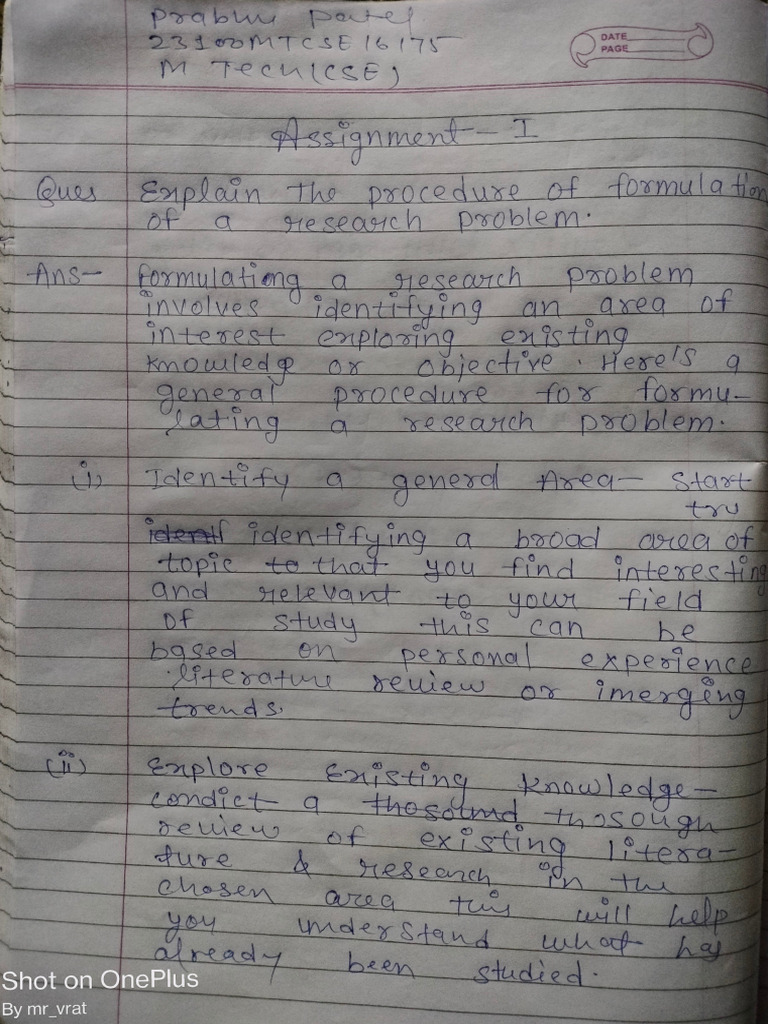 Prabhu Patel
23100MTCSE16175
M Tech (CSE)
DATE
PAGE
Assignment - I
Ques Explain the procedure of formulation
of a research problem.
Ans- formulationg a research problem
involves identifying an area of
interest exploring existing
knowledge or objective. Here's a
general procedure for formu-
lating a research problem.
(i) Identify a general Area - Start
tru
identifying a broad area of
topic to that you find interesting
and relevant to your field
of study this can be
based on personal experience
literature review or imerging
trends.
(ii) Explore Existing knowledge-
condict a thosough
review of existing litera-
ture & research in the
chosen area this will help
you understand what has
already been studied.
Shot on OnePlus
By mr_vrat